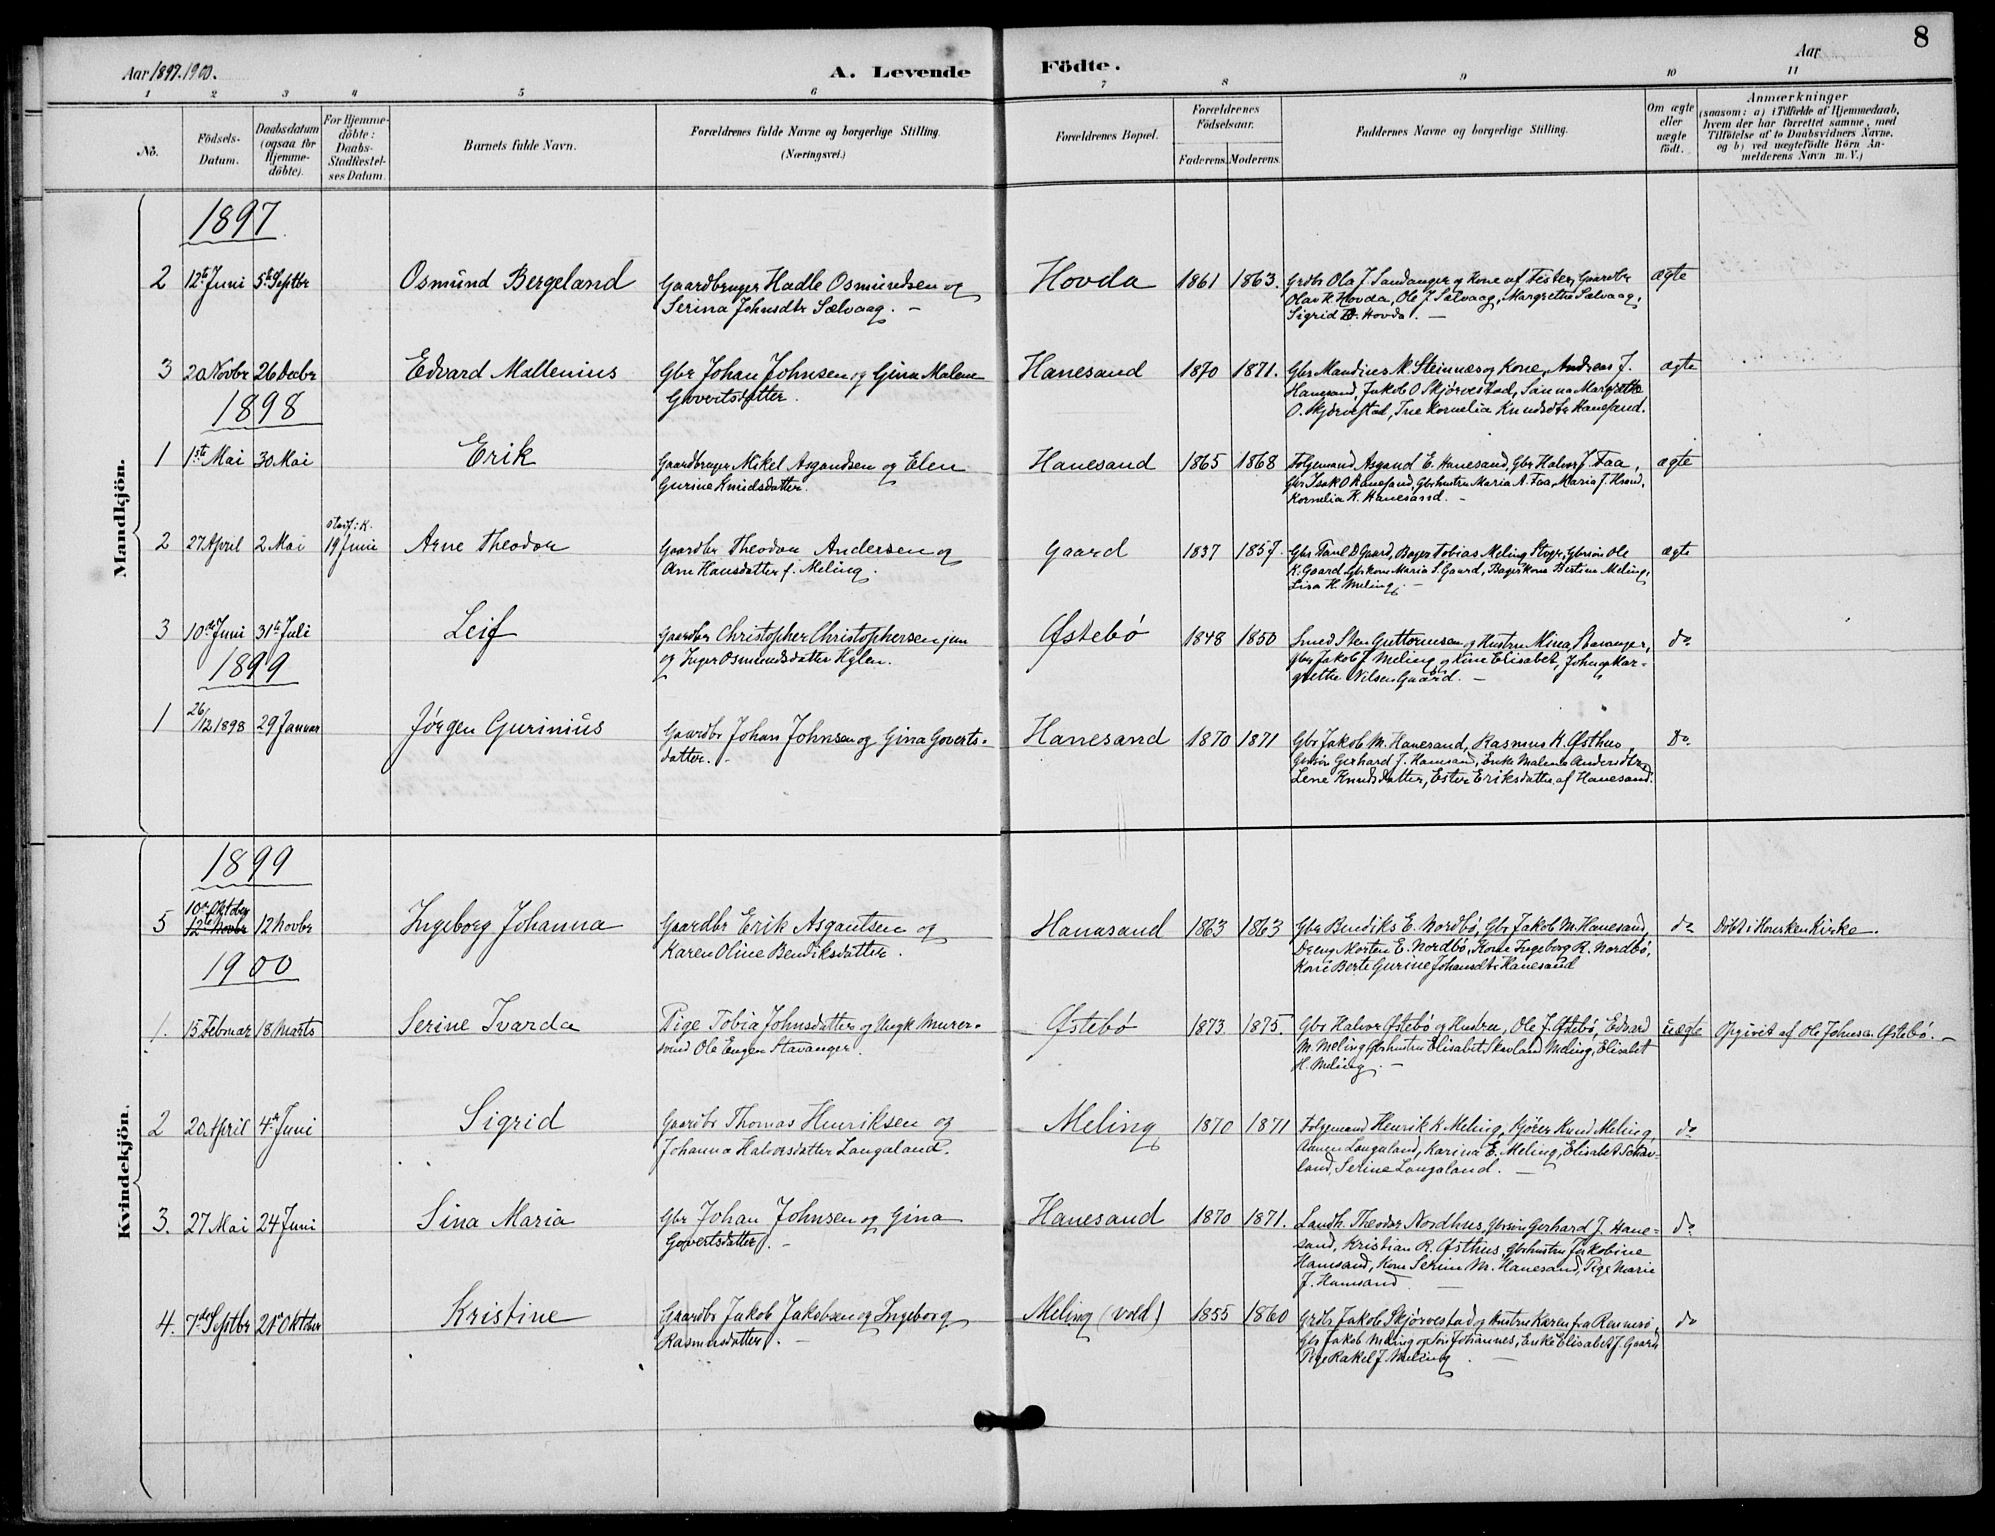 8
Aar 1897.1900.
A. Levende Födte.
Aar
1 2 3 4 5 6 7 8 9 10 11
No.
Födsels-Datum.
Daabsdatum (ogsaa for Hjemmedöbte).
For Hjemmedöbte: Daabs-Stadfæstelses Datum.
Barnets fulde Navn.
Forældrenes fulde Navne og borgerlige Stilling. (Næringsvei.)
Forældrenes Bopæl.
Forældrenes Födselsaar.
Faderens. Moderens.
Faddernes Navne og borgerlige Stilling.
Om ægte eller uægte födt.
Anmærkninger
(saasom: a) i Tilfælde af Hjemmedaab,
hvem der har forrettet samme, med
Tilföielse af to Daabsvidners Navne,
og b) ved uægtefödte Börn An-
melderens Navn m. V.)
Mandkjön.
1897
2 12te Juni 5te Septbr Osmund Bergeland Gaardbruger Hadle Osmundsen og Hovda 1861 1863. Grdbr Ola J. Sandanger og Kone af Fister, Gaardbr ægte
Serina Johnsdtr Sælvaag. - Olav K. Hovda, Ole J. Sælvaag, Margrethe Sælvaag,
Sigrid Hovda. -
3 20 Novbr 26 Decbr Edvard Mallenius Gbr Johan Johnsen og Gina Malene Hanesand 1870 1871. Gbr Mandius M. Steinnes og Kone, Andreas J. ægte
Govertsdatter. Hanesand, Jakob O Skjørvestad, Sanna Margrethe
O. Skjørvestad, Ine Kornelia Knudsdtr Hanesand.
1898
1 1ste Mai 30 Mai Erik Gaardbruger Mikel Asgaudsen og Elen Hanesand 1865 1868 Folgemand Asgaud E. Hanesand, Gbr Halvor J. Faa, ægte
Gurine Knudsdatter. Gbr Isak O Hanesand, Gbrhustru Maria A. Faa, Maria J. Hsand,
Kornelia K. Hanesand. -
2 27 April 2 Mai 19 Juni Arne Theodor Gaardbr Theodor Andersen og Gaard 1837 1857. Gbr Paul D Gaard, Bager Tobias Meling Stvgr, Gbrsøn Ole ægte
Ane Hansdatter f. Meling. K. Gaard, Gbrkone Maria S. Gaard, Bagerkone Bertine Meling,
Lisa H. Meling. -
3 10de Juni 31te Juli Leif Gaardbr Christopher Christophersen jun Østebö 1848 1850 Smed Sten Guttormsen og Hustru Mina, Stavanger, do
og Inger Osmundsdatter Hylen. Gbr Jakob J. Meling og Kone Elisabet, John og Mar-
grethe Nilsen Gaard. -
1899
1 26/12 1898 29 Januar Jørgen Gurinius Gaardbr Johan Johnsen og Gina Goverts- Hanesand 1870 1871 Gbr Jakob M. Hanesand, Rasmus K. Østhus, Do.
datter. - Gbrsøn Gerhard J. Hanesand, Enke Malena Andersdtr,
Lene Knudsdatter, Ester Eriksdatter af Hanesand.
Kvindekjön.
1899
5 10de Oktober 12te Novbr 12 Novbr Ingeborg Johanna Gaardbr Erik Asgautsen og Hanasand 1863 1863 Gbr Bendiks E. Nordbö, Gbr Jakob M. Hanesand, do Döbt i Hauskenkirke.
Karen Oline Bendiksdatter. Dreng Morten E. Nordbö, Kone Ingeborg R. Nordbö,
Kone Berte Gurine Johansdtr Hanesand
1900
1. 15 Februar 18 Marts Serine Ivarda Pige Tobia Johnsdatter og Ungk. Murer- Østebö 1873 1875. Gbr Halvor Østebö og Hustru, Ole J. Østebö, Edvard uægte Opgivet af Ole Johnsen Østebö. -
svend Ole Eugen Stavanger. M. Meling Gbrhustru Elisabet Skavland Meling, Elisabet
H. Meling. -
2 20 April 4de Juni Sigrid Gaardbr Thomas Henriksen og Meling 1870 1871 Folgemand Henrik K Meling, Kjörer Knud Meling, do
Johanna Halvorsdatter Langaland. Aanen Langaland, Karina E. Meling, Elisabet Schav-
land, Serine Langaland. -
3. 27 Mai 24 Juni Sina Maria Gbr Johan Johnsen og Gina Hanesand 1870 1871. Landh. Theodor Nordhus, Gbrsön Gerhard J. Hane- do
Govertsdatter. - sand, Kristian R. Østhus, Gbrhustru Jakobine
Hanesand, Kone Serine M. Hanesand, Pige Marie
J. Hanesand
4. 7de Septbr 21 Oktober Kristine Gaardbr Jakob Jakobsen og Ingeborg Meling (vold) 1855 1860 Grdbr Jakob Skjørvestad og Hustru Karen fra Rennesö, do
Rasmusdatter. - Gbr Jakob Meling og Sön Johannes, Enke Elisabet J. Gaard
Pige Rakel J. Meling. -